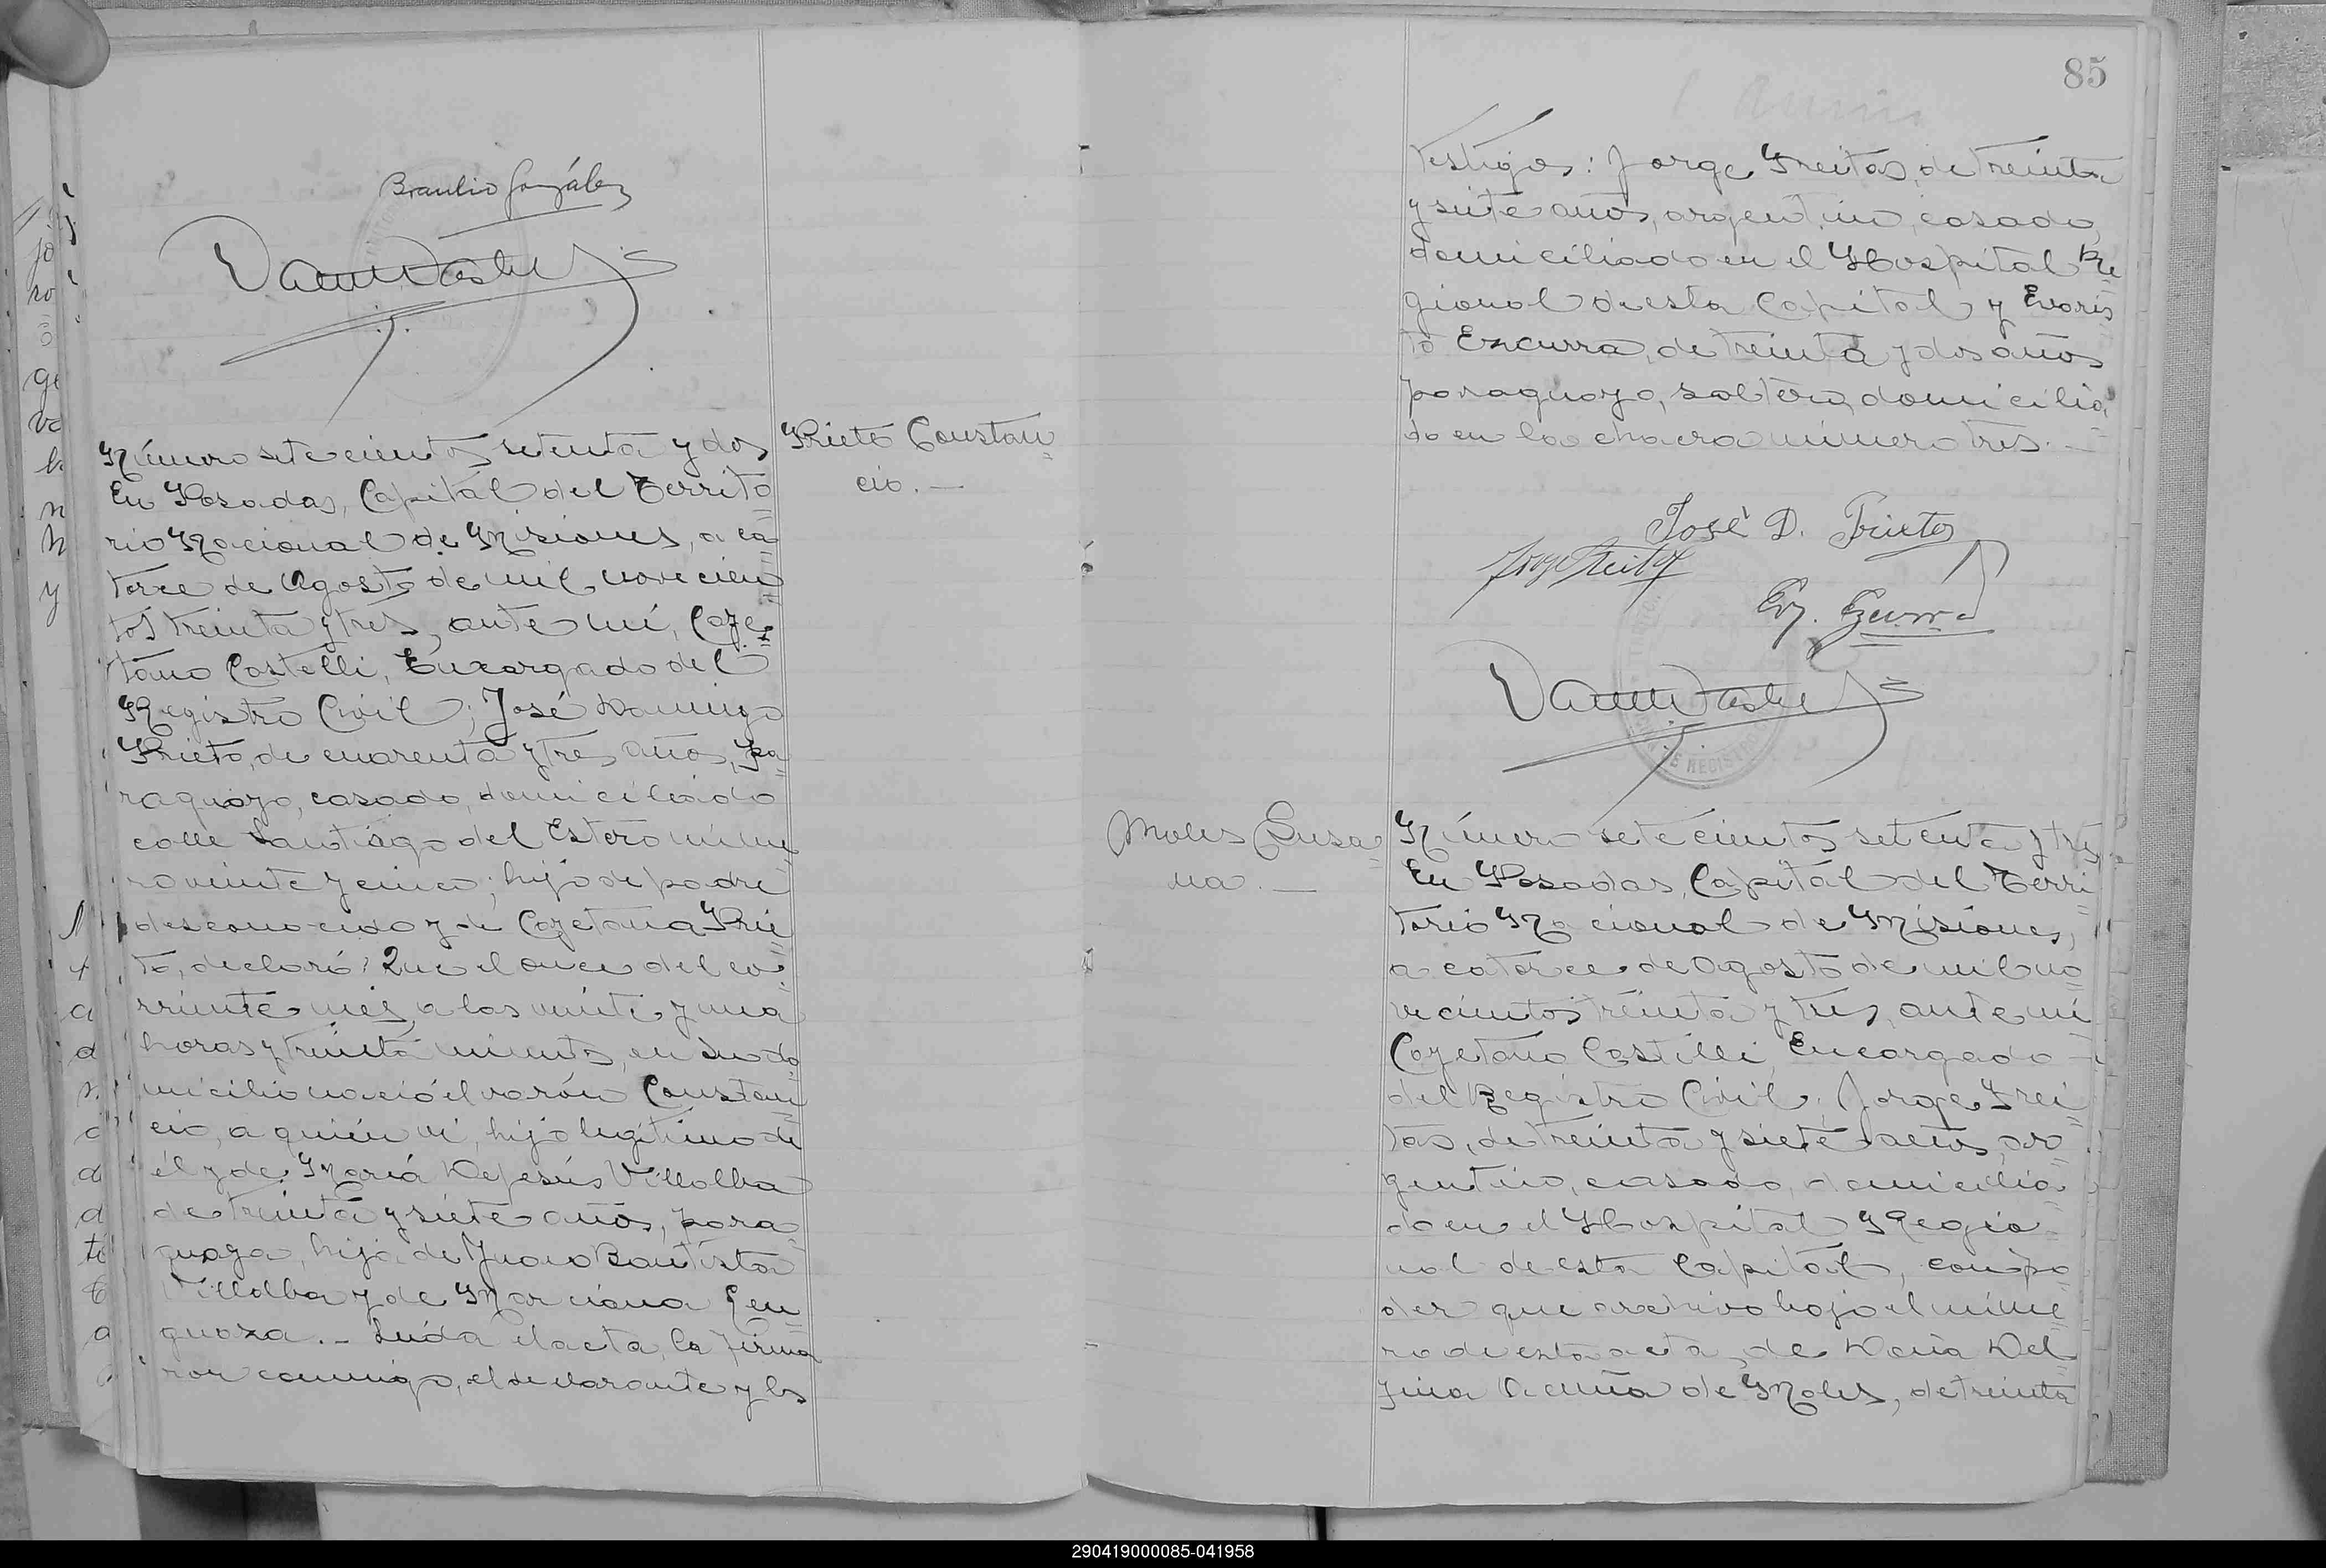 85
Braulio González
Número setecientos setenta y dos
En Posadas, Capital del Territo=
rio Nacional de Misiones, a ca=
torce de Agosto de mil novecien=
tos treinta y tres, ante mí, Caye=
tano Castelli, Encargado del
Registro Civil; José Domingo
Prieto, de cuarenta y tres años, pa=
raguayo, casado, domiciliado
calle Santiago del Estero núme=
ro veinte y cinco; hijo de padre
desconocido y de Cayetana Prie=
to, declaró: Que el once del co=
rriente mes, a las veinte y una
horas y treinta minutos, en su do=
micilio nació el varón Constan=
cio, a quién vi, hijo legítimo de
él y de María De Jesús Villalba
de treinta y siete años, para=
guaya, hija de Juan Bautista
Villalba y de Marciana
Leída el acta, la firma=
ron conmigo, el declarante y los
Prieto Constan=
cio.—
testigos: Jorge Freitas, de treinta
y siete años, argentino, casado,
domiciliado en el Hospital Re=
gional de esta Capital y Evaris=
to Ezcurra, de treinta y dos años
paraguayo, soltero, domicilia=
do en la chacra número tres.—
José D. Prieto
Jorge Freitas
Ev. Ezcurra
Moles Susa=
na.—
Número setecientos setenta y tres
En Posadas, Capital del Terri=
torio Nacional de Misiones,
a catorce de Agosto de mil no=
vecientos treinta y tres, ante mí
Cayetano Castelli, Encargado
del Registro Civil; Jorge Frei=
tas, de treinta y siete años, ar=
gentino, casado, domicilia=
do en el Hospital Regio=
nal de esta Capital, con po=
der que archivo bajo el núme=
ro de esta acta, de Doña Del=
fina Acuña de Moles, de treinta
290419000085-041958